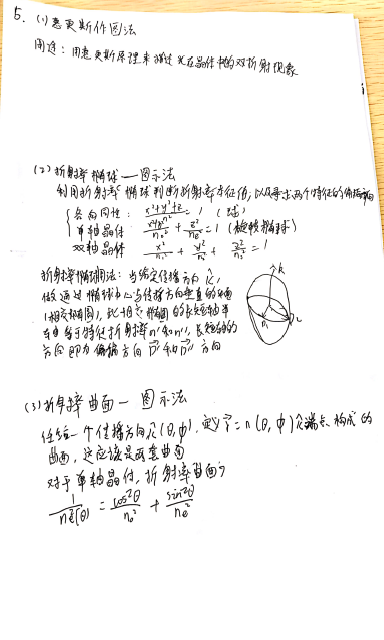 5. (1) 惠更斯作图法
用途：用惠更斯原理来描述光在晶体中的双折射现象
(2) 折射率椭球—图示法
利用折射率椭球判断折射率本征值，以及寻求两个特征的偏振方向
各向同性： = 1 (球)
单轴晶体 x²+y²/n₀² + z²/nₑ² = 1 (旋转椭球)
双轴晶体 x²/n₁² + y²/n₂² + z²/n₃² = 1
折射率椭球用法：当给定传播方向 k̂,
做通过椭球中心与传播方向垂直的平面
(相交椭圆), 此相交椭圆的长短轴半
车由等于特征折射率n'和n'', 长短轴的
方向即为偏振方向 D' 和 D'' 方向
k
D₁
D₂
(3) 折射率曲面—图示法
任给一个传播方向 k̂(θ,φ), 定义 r⃗ = n(θ,φ) k̂ 端点构成的
曲面, 这应该是两套曲面
对于单轴晶体, 折射率曲面
1/nₑ²(θ) = cos²θ/n₀² + sin²θ/nₑ²